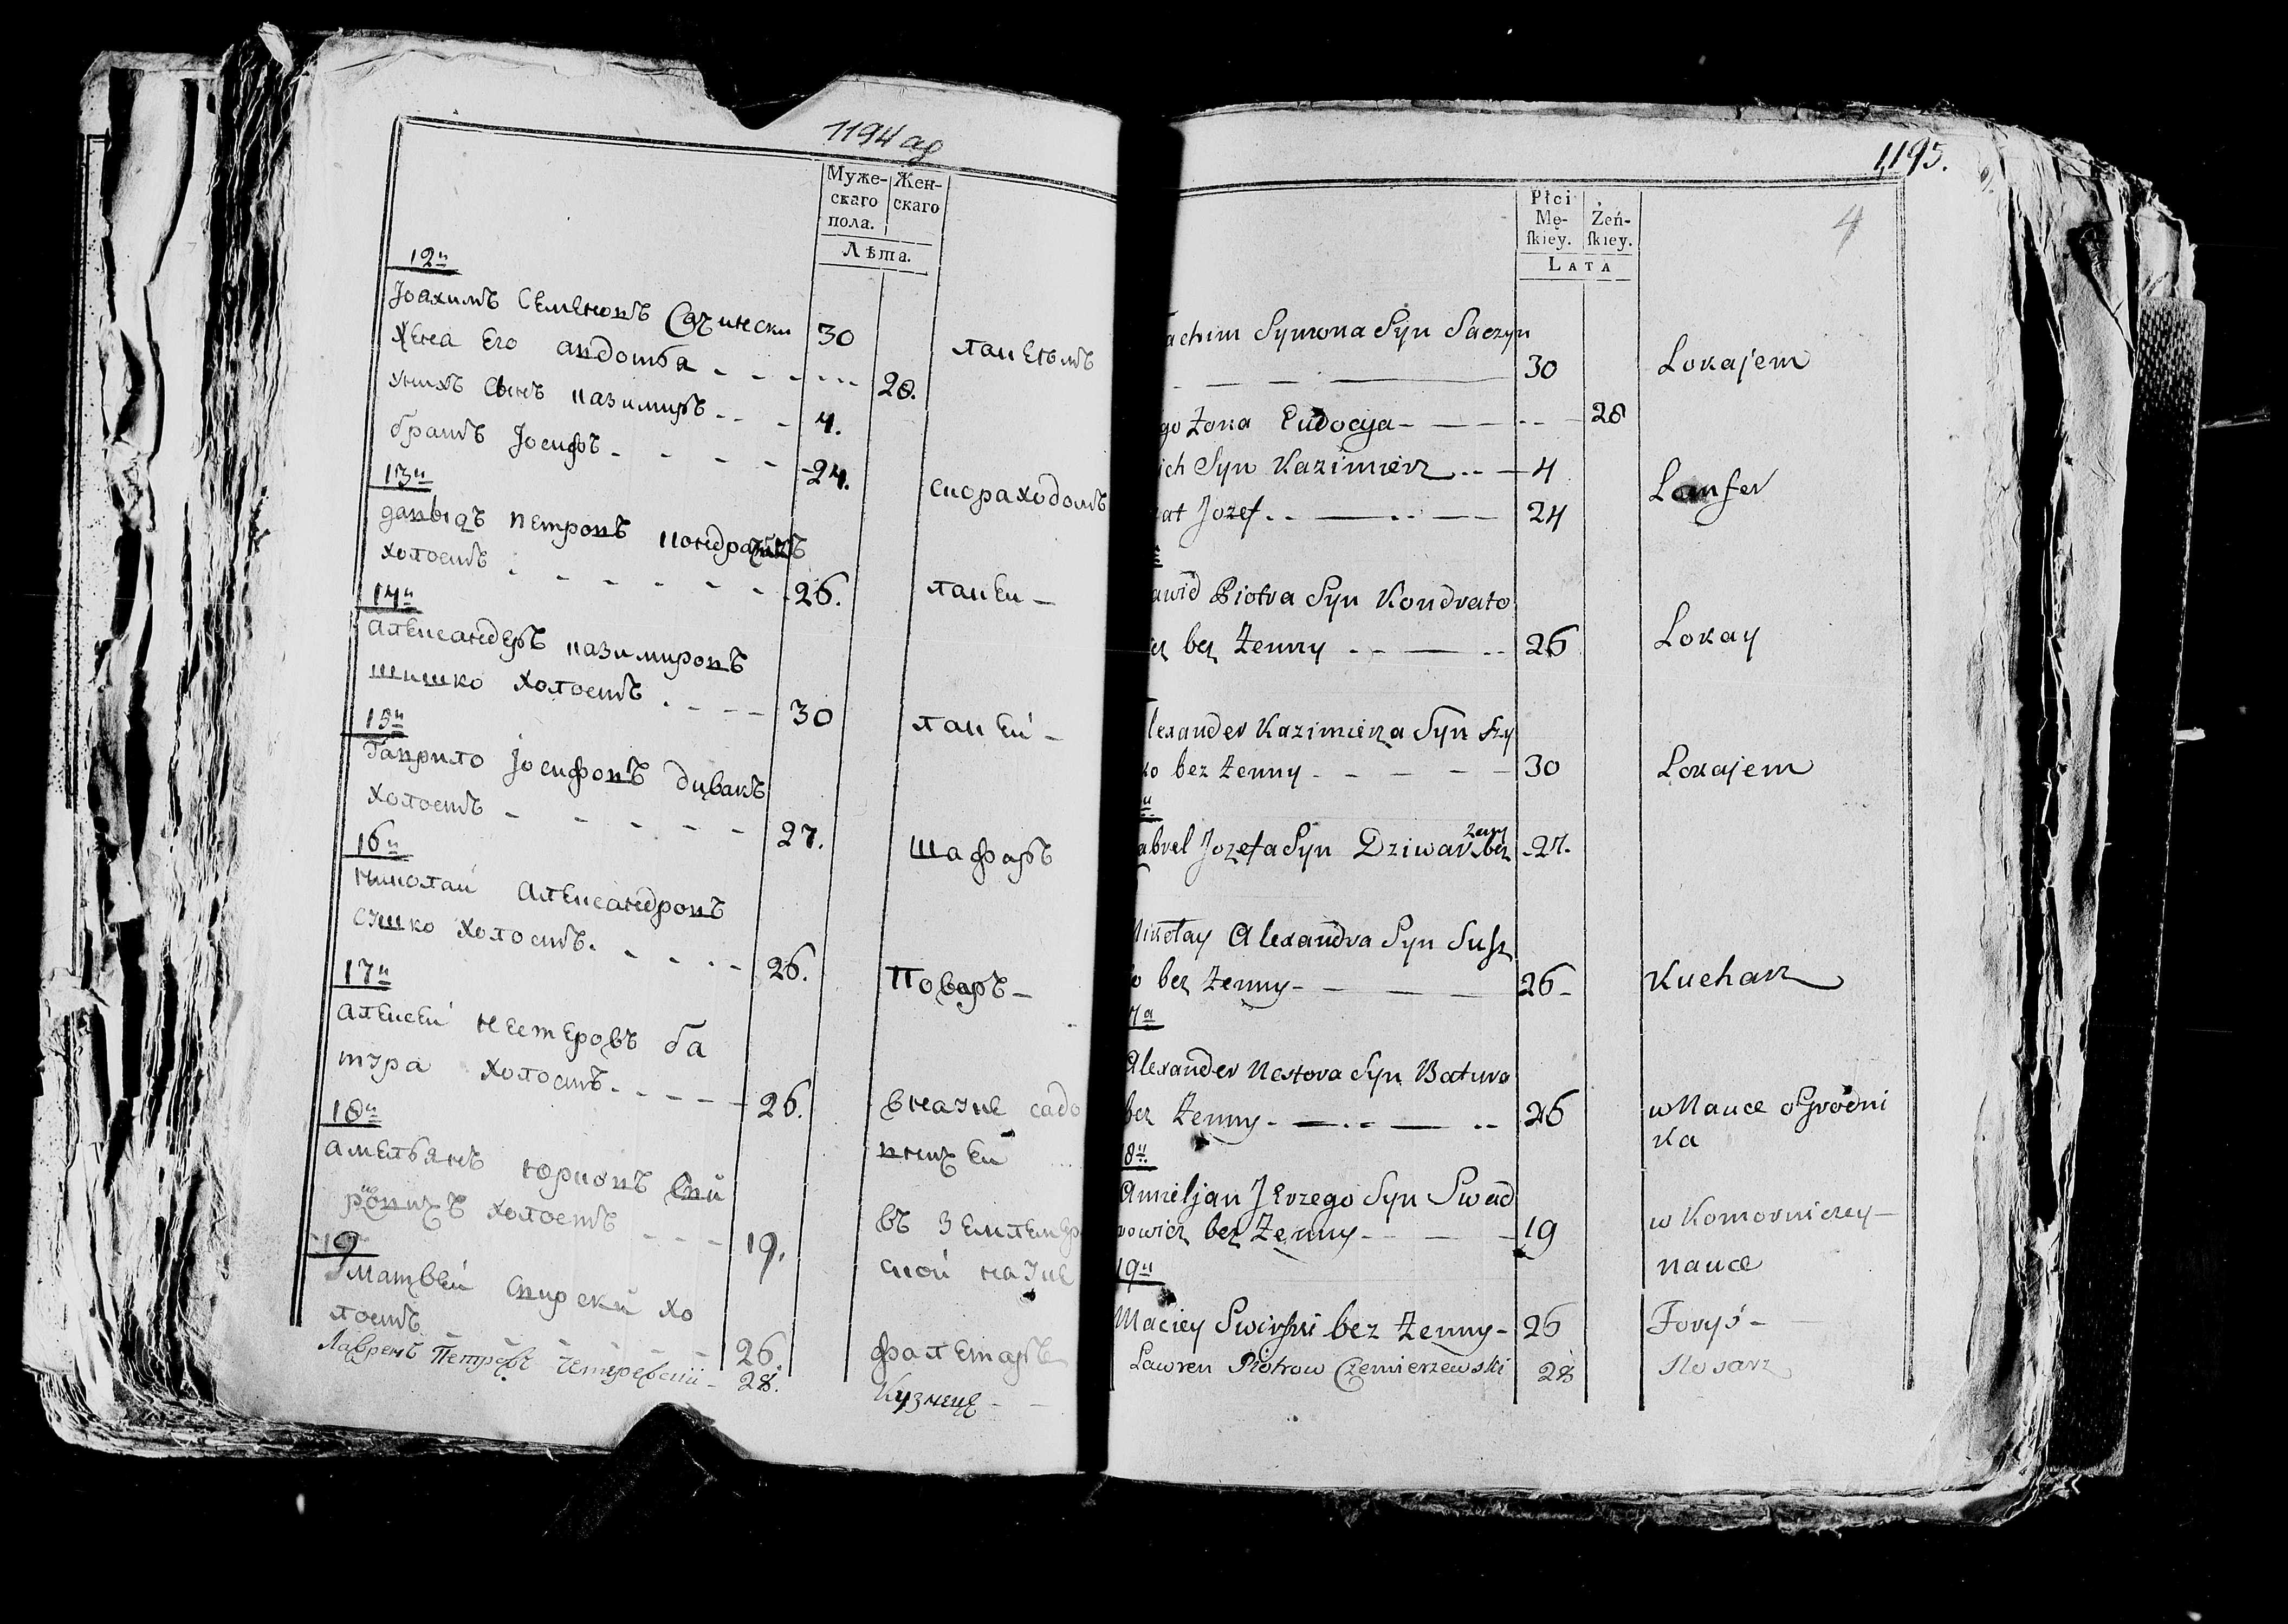 1194 об
Муже-
скаго
пола.
Жен-
скаго
Лѣта.
12й
Іоахимъ Семеновъ Сачински 30 лакеѣмъ
Жена Его авдотья 28.
унихъ Сынъ казимиръ 4.
братъ Іосифъ 24. скораходомъ
13й
давыдъ петровъ
холостъ 26. лакеи
14й
александеръ казимировъ
шишко холостъ 30 лакеи
15й
Гаврило Іосифовъ дивакъ
холостъ 27. шафаръ
16й
николаи александровъ
сушко холостъ. 26. Поваръ
17й
алексеи нестеровъ ба
тура холостъ 26. внауке садо
вничеи
18й
амельянъ юриовъ
холостъ 19. въ землемер
скои науке
19
матвеи свирски хо
лостъ 26. фалетаръ
Лавренъ Петровъ 28. Кузнеце
1195.
4
Płci
Mę-
ſkiey.
Żeń-
ſkiey.
LATA
achim Symona Syn Saczyn
30 Lokajem
go Żona Eudocyja 28
ich Syn Kazimierz 4
at Jozef 24 Laufer
awid Piotra Syn Kondrato
cz bez Żenny 26 Lokay
lexander Kazimierza Syn Szy
ko bez Żenny 30 Lokajem
abrel Jozefa Syn Dziwak bez żeny 27.
Mikołay Alexandra Syn Susz
ko bez Żenny 26 Kucharz
17a
Alexander Nestora Syn Batura
bez Żenny 26 w Nauce ogrodni
ka
18u
Amieljan Jerzego Syn Swad
rowicz bez Żenny 19 w Komorniczey
nauce
19u
Maciey Swirski bez Żenny 26 Foryś
Lawren Piotrow Czemierzewski 28 slosarz